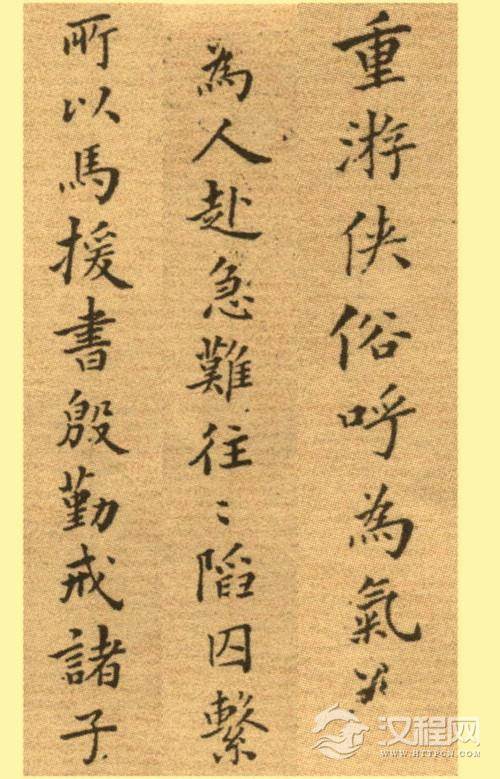 重游侠俗呼為氣义
為人赴急難往〻陷囚繫
所以馬援書殷勤戒諸子
汉程网
WWW.HTTPCN.COM